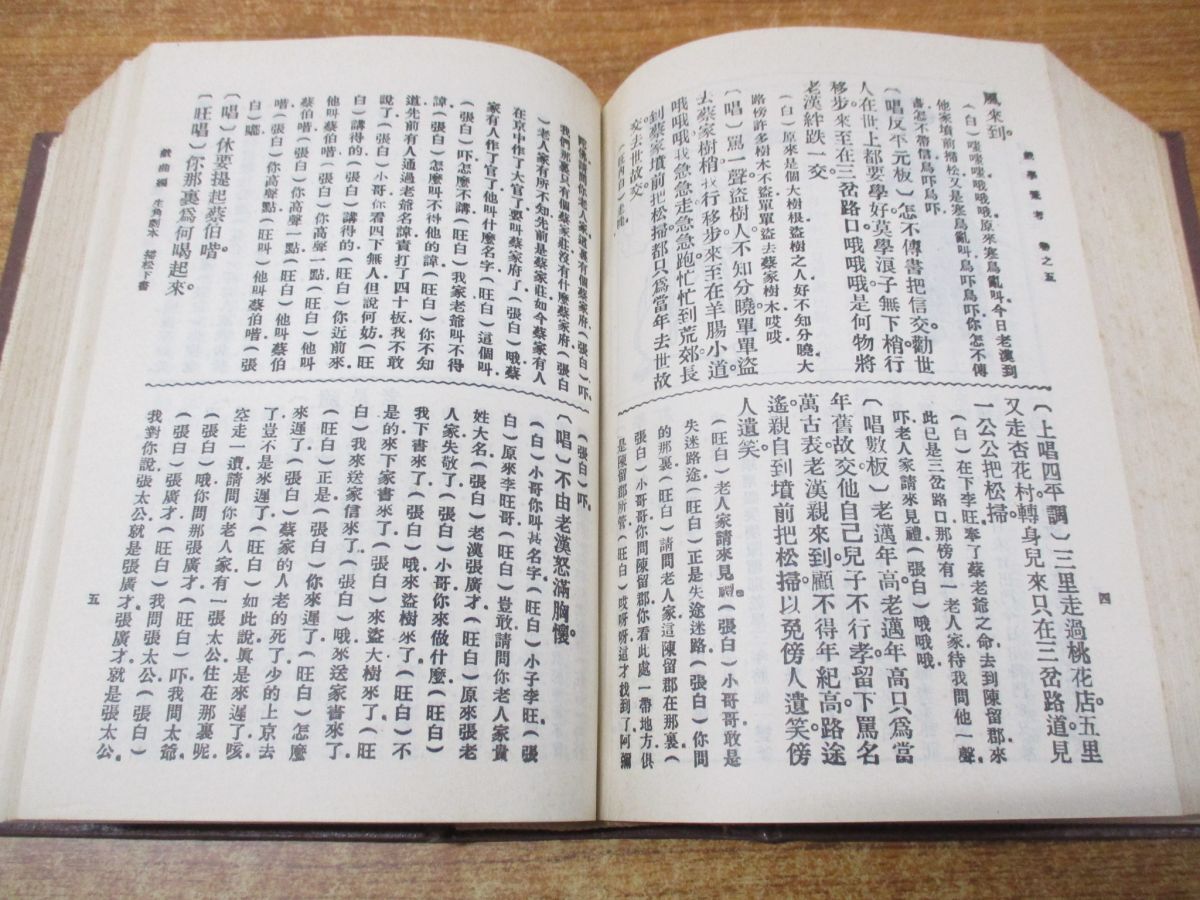 戲學彙考　卷之五
風來到。
原來寒鳥亂叫.今日老漢到
他家墳前掃松又是寒鳥亂叫鳥吓鳥吓你怎不傳
書怎不帶信鳥吓鳥吓
(唱反平元板)怎不傳書把信交。勸世
人在世上都要學好莫學浪子無下梢行
移步來至在三岔路口哦哦哦是何物將
老漢絆跌一交。
(白)原來是個大樹根盜樹之人好不知分曉大
路傍許多樹木不盜單單盜去蔡家樹木哎
(唱)罵一聲盜樹人不知分曉單單盜
去蔡家樹梢。我行移步來至在羊腸小道
哦哦哦我急急走急急跑忙忙到荒郊。長
到蔡家墳前把松掃都只爲當年去世故
交去世故交
(旺內白)走
(上唱四平調)三里走過桃花店。五里
又走杏花村。轉身兒來只在三岔路道見
一公公把松掃
(白)在下李旺.奉了蔡老爺之命.去到陳留郡來
此已是三岔路口那傍有一老人家待我問他一聲
吓老人家請來見禮(張白)哦哦哦.
(唱數板)老邁年高。老邁年高只爲當
年舊故交。他自己兒子不行孝留下罵名
萬古表。老漢親來到顧不得年紀高。路途
遙親自到墳前把松掃。以免傍人遺笑傍
人遺笑。
(旺白)老人家請來見禮(張白)小哥哥敢是
失迷路途(旺白)正是失途迷路(張白)你問
的那裏(旺白)請問老人家這陳留郡在那裏.(
張白)小哥哥你問陳留郡你看此處一帶地方俱
是陳留郡所管(旺白)哎呀呀這才找到了.阿彌
四
陀佛請問你老人家這裏有個蔡家府(張白)吓
我們那裏只有個蔡家莊沒有什麼蔡家府(旺白
)老人家有所不知先前是蔡家莊如今蔡家有人
在京中作了大官了要叫蔡家府了(張白)哦蔡
家有人作了官了他叫什麼名字(旺白)這個叫.
(張白)吓怎麼不講.(旺白)我家老爺叫不得
諱.(張白)怎麼叫不得他的諱(旺白)你不知
道先前有人通過老爺名諱責打了四十板我不敢
說了(張白)小哥你看四下無人但說何妨(旺
白)講得的(張白)講得的(旺白)你近前來.
他叫蔡伯喈(張白)你高聲一點(旺白)他叫
蔡伯喈(張白)你高聲一點.(旺白)他叫蔡伯
喈(張白)你高聲點.(旺叫)他叫蔡伯喈(張
白)
(唱)休要提起蔡伯喈。
(旺唱)你那裏爲何喝起來。
(張白)吓.
(唱)不由老漢怒滿胸懷。
(白)小哥你叫甚名字(旺白)小子李旺.(張
白)原來李旺哥(旺白)豈敢請問你老人家貴
姓大名(張白)老漢張廣才(旺白)原來張老
人家失敬了(張白)小哥你來做什麼(旺白)
我下書來了(張白)哦來盜樹來了(旺白)不
是的來下家書來了(張白)來盜大樹來了.(旺
白)我來送家信來了(張白)哦來送家書來了.
(旺白)正是(張白)你來遲了(旺白)怎麼
來遲了(張白)蔡家的人老的死了少的上京去
了豈不是來遲了(旺白)如此說眞是來遲了咳
空走一遭請問你老人家有一張太公住在那裏呢
(張白)哦你問那張廣才(旺白)吓我問太爺
(張白)張廣才(旺白)我問張太公(張白)
我對你說張太公就是張廣才.張廣才就是張太公.
戲曲編　生角劇本　掃松下書
五